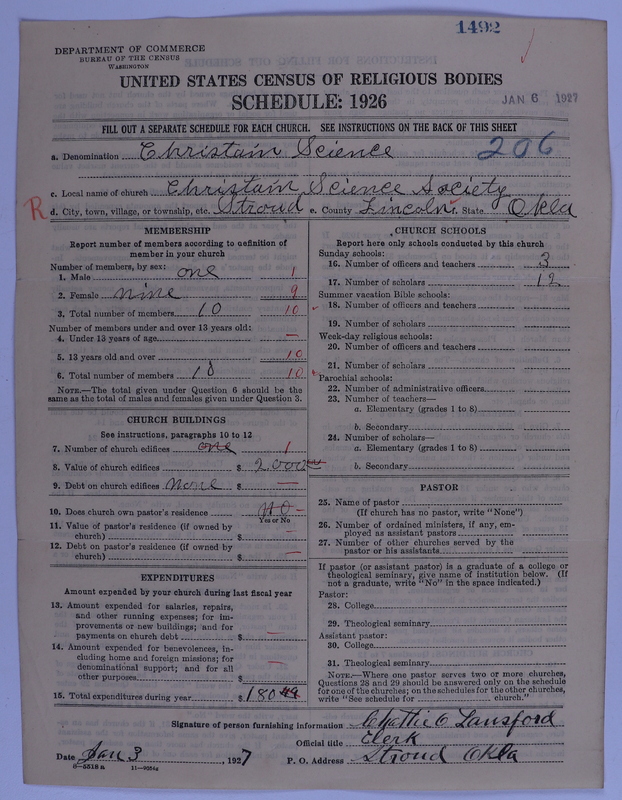 1492
DEPARTMENT OF COMMERCE
BUREAU OF THE CENSUS
WASHINGTON
UNITED STATES CENSUS OF RELIGIOUS BODIES
SCHEDULE: 1926
JAN 6 1927
FILL OUT A SEPARATE SCHEDULE FOR EACH CHURCH. SEE INSTRUCTIONS ON THE BACK OF THIS SHEET
a. Denomination Christain Science 206
c. Local name of church Christain Science Society
R d. City, town, village, or township, etc. Stroud e. County Lincoln f. State Okla
MEMBERSHIP
Report number of members according to definition of
member in your church
Number of members, by sex:
1. Male one 1
2. Female nine 9
3. Total number of members 10 10
Number of members under and over 13 years old:
4. Under 13 years of age —
5. 13 years old and over 10
6. Total number of members 10 10
NOTE.—The total given under Question 6 should be the
same as the total of males and females given under Question 3.
CHURCH BUILDINGS
See instructions, paragraphs 10 to 12
7. Number of church edifices one 1
8. Value of church edifices $ 2,000
9. Debt on church edifices None $ —
10. Does church own pastor's residence NO —
Yes or No
11. Value of pastor's residence (if owned by
church) $ —
12. Debt on pastor's residence (if owned by
church) $ —
EXPENDITURES
Amount expended by your church during last fiscal year
13. Amount expended for salaries, repairs,
and other running expenses; for im-
provements or new buildings; and for
payments on church debt $ —
14. Amount expended for benevolences, in-
cluding home and foreign missions; for
denominational support; and for all
other purposes $ —
15. Total expenditures during year $ 180 49
CHURCH SCHOOLS
Report here only schools conducted by this church
Sunday schools:
16. Number of officers and teachers 3
17. Number of scholars 12
Summer vacation Bible schools:
18. Number of officers and teachers
19. Number of scholars
Week-day religious schools:
20. Number of officers and teachers
21. Number of scholars
Parochial schools:
22. Number of administrative officers
23. Number of teachers—
a. Elementary (grades 1 to 8)
b. Secondary
24. Number of scholars—
a. Elementary (grades 1 to 8)
b. Secondary
PASTOR
25. Name of pastor
(If church has no pastor, write "None")
26. Number of ordained ministers, if any, em-
ployed as assistant pastors
27. Number of other churches served by the
pastor or his assistants
If pastor (or assistant pastor) is a graduate of a college or
theological seminary, give name of institution below. (If
not a graduate, write "No" in the space indicated.)
Pastor:
28. College
29. Theological seminary
Assistant pastor:
30. College
31. Theological seminary
NOTE.—Where one pastor serves two or more churches,
Questions 28 and 29 should be answered only on the schedule
for one of the churches; on the schedules for the other churches,
write "See schedule for church."
Signature of person furnishing information Lansford
Official title Clerk
Date Jan 3, 1927 P. O. Address Stroud Okla
8-5518 a